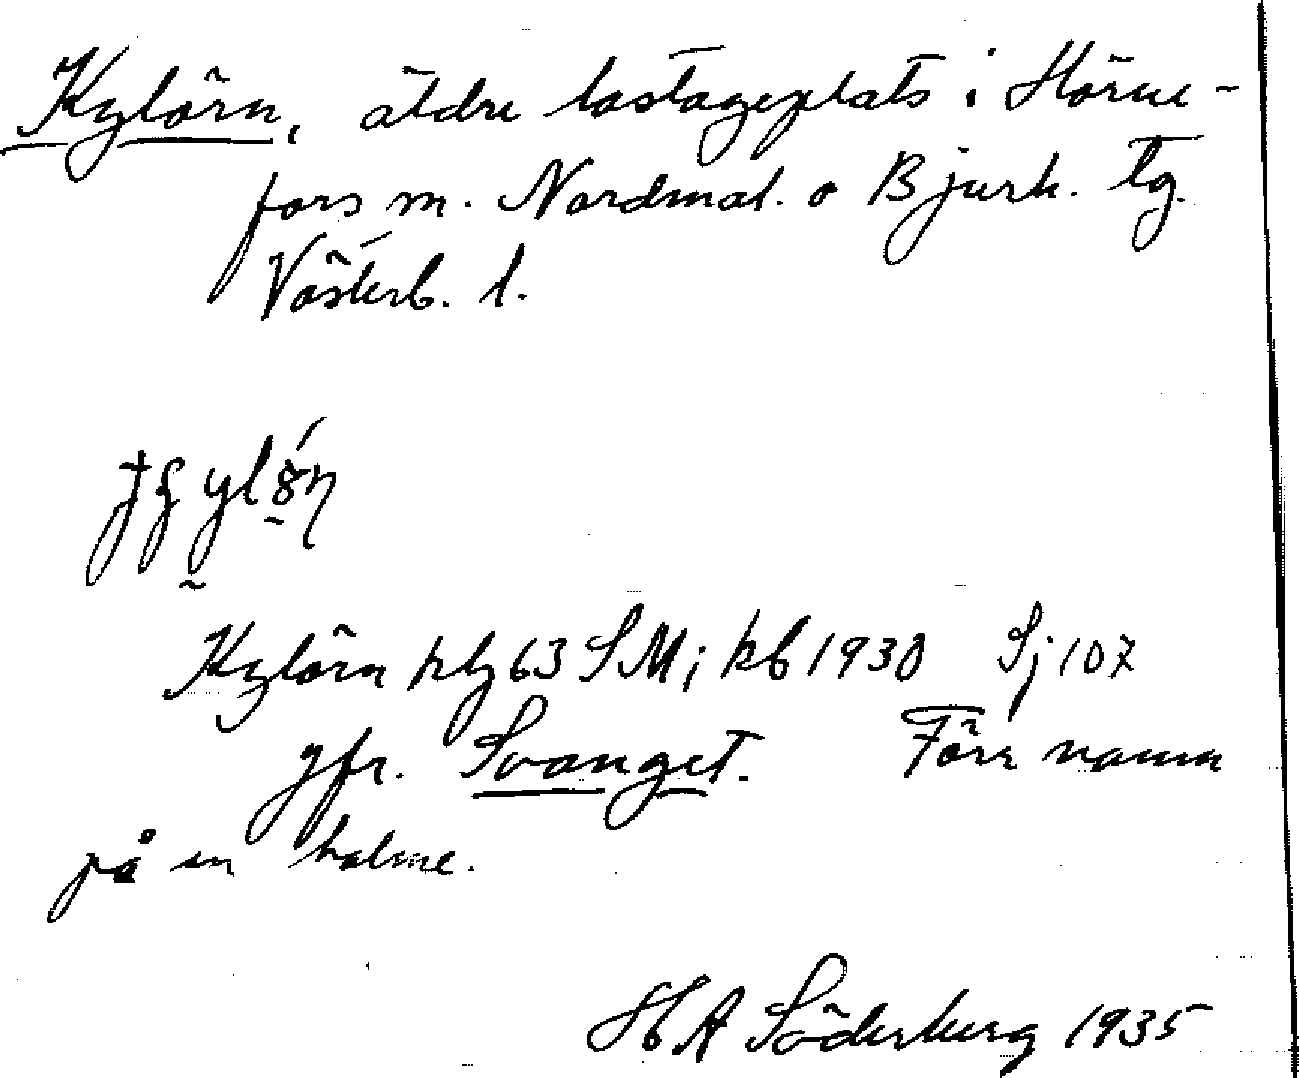 Kylörn, äldre lastageplats i Hörne-
fors m. Nordmal. o Bjurh. tg.
Västerb. l.
Kylörn klg 63 SM; kb 1930 Sj 107
jfr. Svanget. Förr namn
på en holme.
HA Söderberg 1935